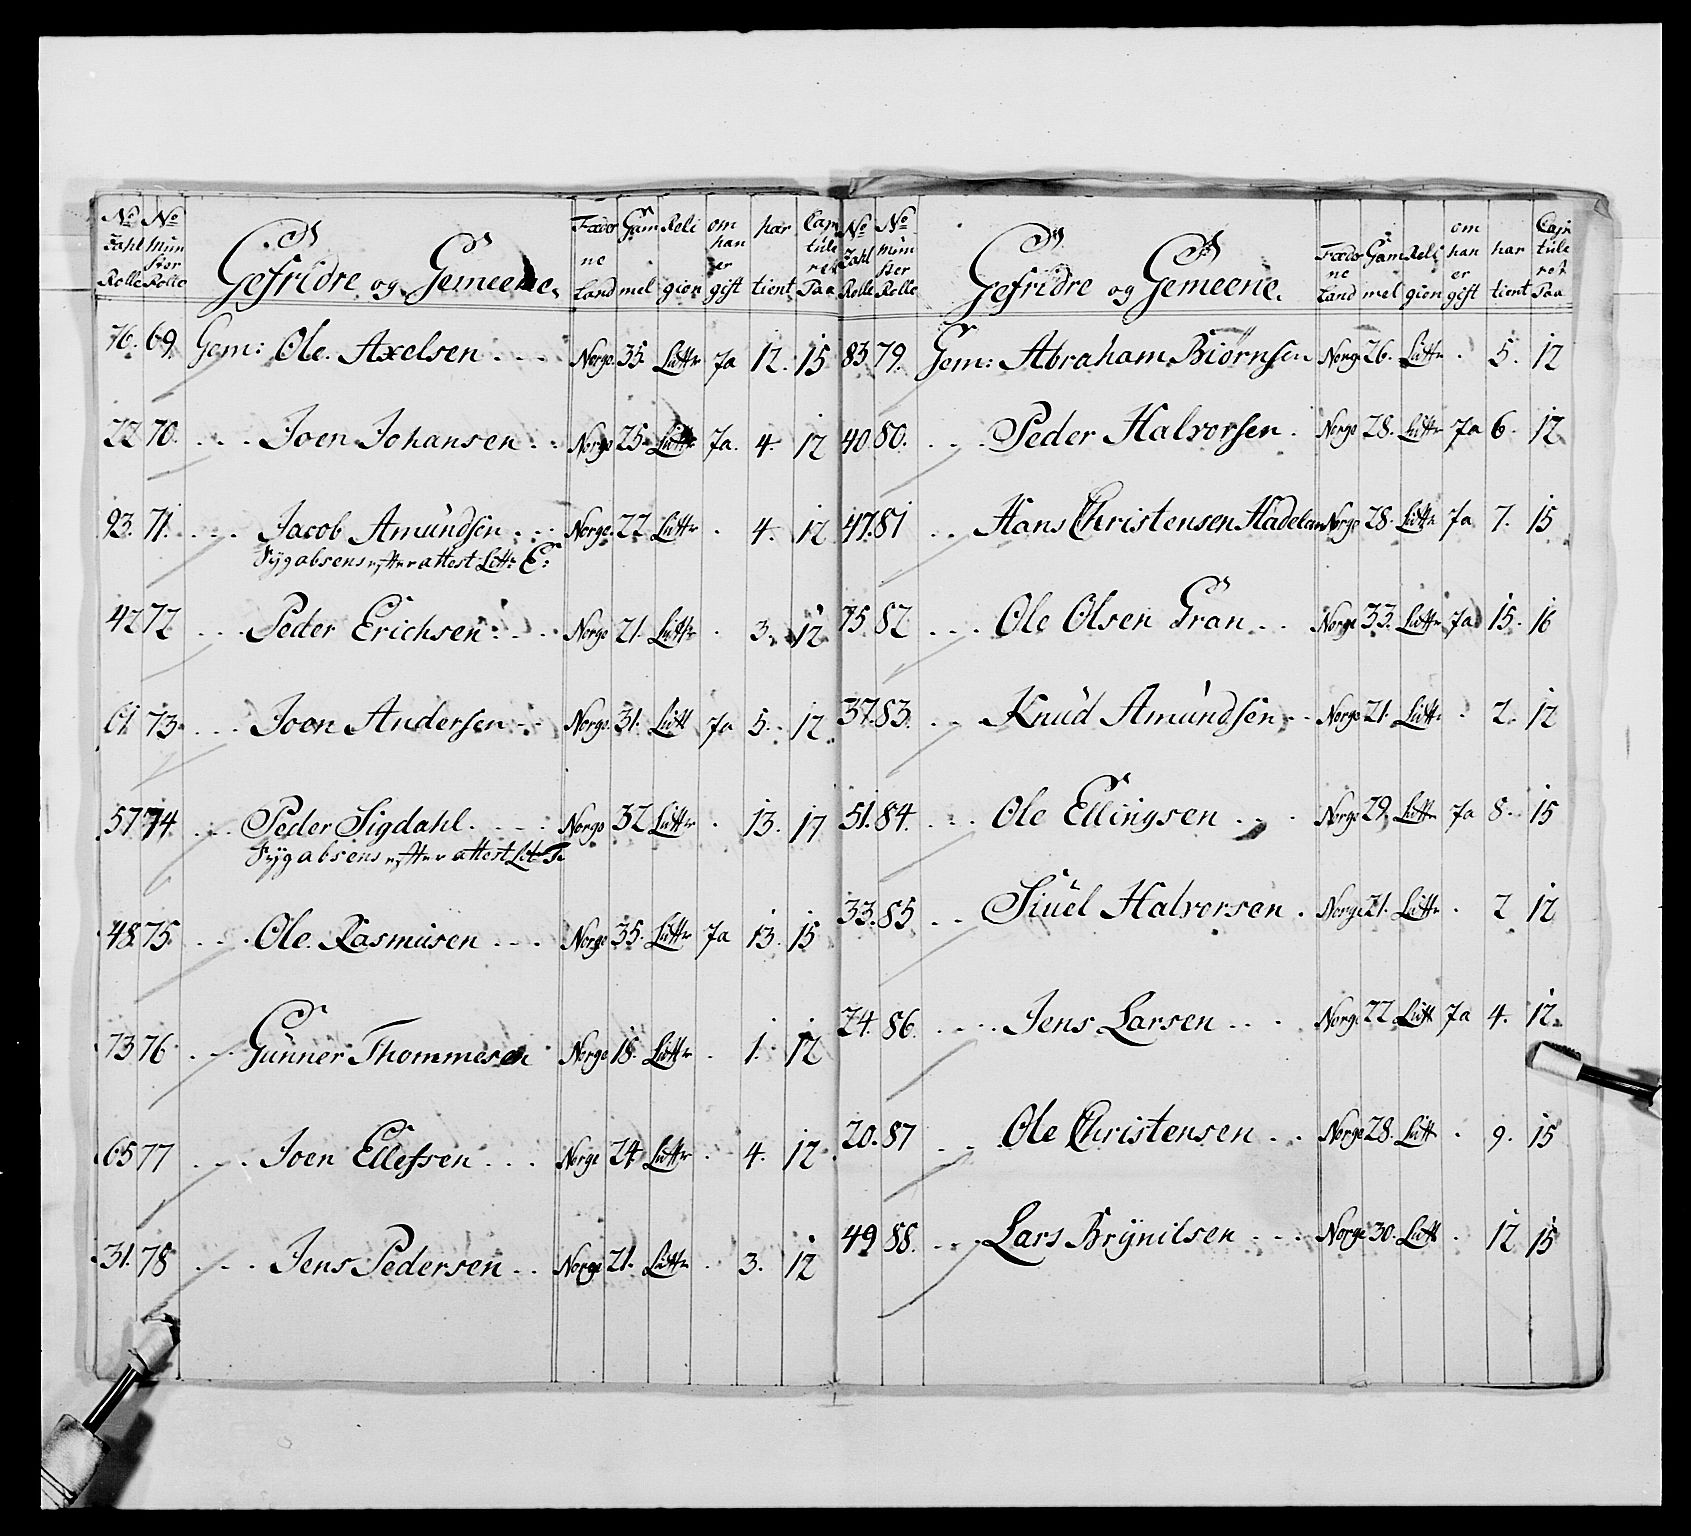 No No Gefridre og Gemeene. Fædor Gam Reli om har Cap
Zahl Mün ne mel gion han tient tule
Rolle ster land er ret
Rolle gift Paa
76. 69. Gem: Ole. Axelsen . . . Norge. 35. Lutt~ Ja 12. 15
22 70. . . . Joen Johansen . . Norge 25. Lutt~ Ja. 4. 12
93. 71. . . . Jacob Amündsen . . . Norge. 22 Lutt~ . 4. 12
Sygabsens efter attest Litt: C:
42 72 . . . Peder Erichsen . . . Norge 21. Lutt~ . 3. 12
61. 73. . . . Joen Andersen . . Norge. 31. Lutt Ja 5. 12
57 74. . . . Peder Sigdahl . . . . Norge 32 Lutt~ . 13. 17
Sygabsens efter attest Lit
48. 75. . . . Ole. Rasmüsen . . . Norge 35. Lutt~ Ja 13. 15
73 76 . . . Günner Thommesen Norge 18. Lutt~ . 1. 12
65 77 . . . Joen Ellefsen . . . Norge 24. Lutt~ . 4. 12
31. 78 . . . Jens Pedersen . . Norge 21. Lutt~ . 3. 12
No No Gefridre og Gemeene. Fædor Gam Reli om har Cap
Zahl Mün ne mel gion han tient tule
Rolle ster land er ret
Rolle gift Paa
83. 79. Gem: Abraham Biörnsen Norge 26. Lutt~ . 5. 12
40 80. . . . Peder Halvorsen . Norge 28. Lutt~ Ja 6. 12
47. 81 . . Hans Christensen Hadelan Norge 28. Lutt~ Ja 7. 15
75. 82 . . . Ole Olsen Gran . . Norge 33. Lutt~ Ja 15. 16
37. 83. . . Knüd Amündsen . . Norge 21. Lutt~ . 2. 12
51. 84. . . . Ole Ellingsen . . . Norge 29. Lutt~ Ja 8. 15
33. 85 . . Siuel Halvorsen . Norge 21. Lutt~ . 2 12
24. 86. . . . Jens Larsen . . . Norge 22 Lutt Ja 4. 12.
20. 87 . . Ole Christensen . . Norge 28. Lutt . 9. 15
49 88. . . . Lars Brÿnilsen . . . Norge 30. Lutt . 12 15